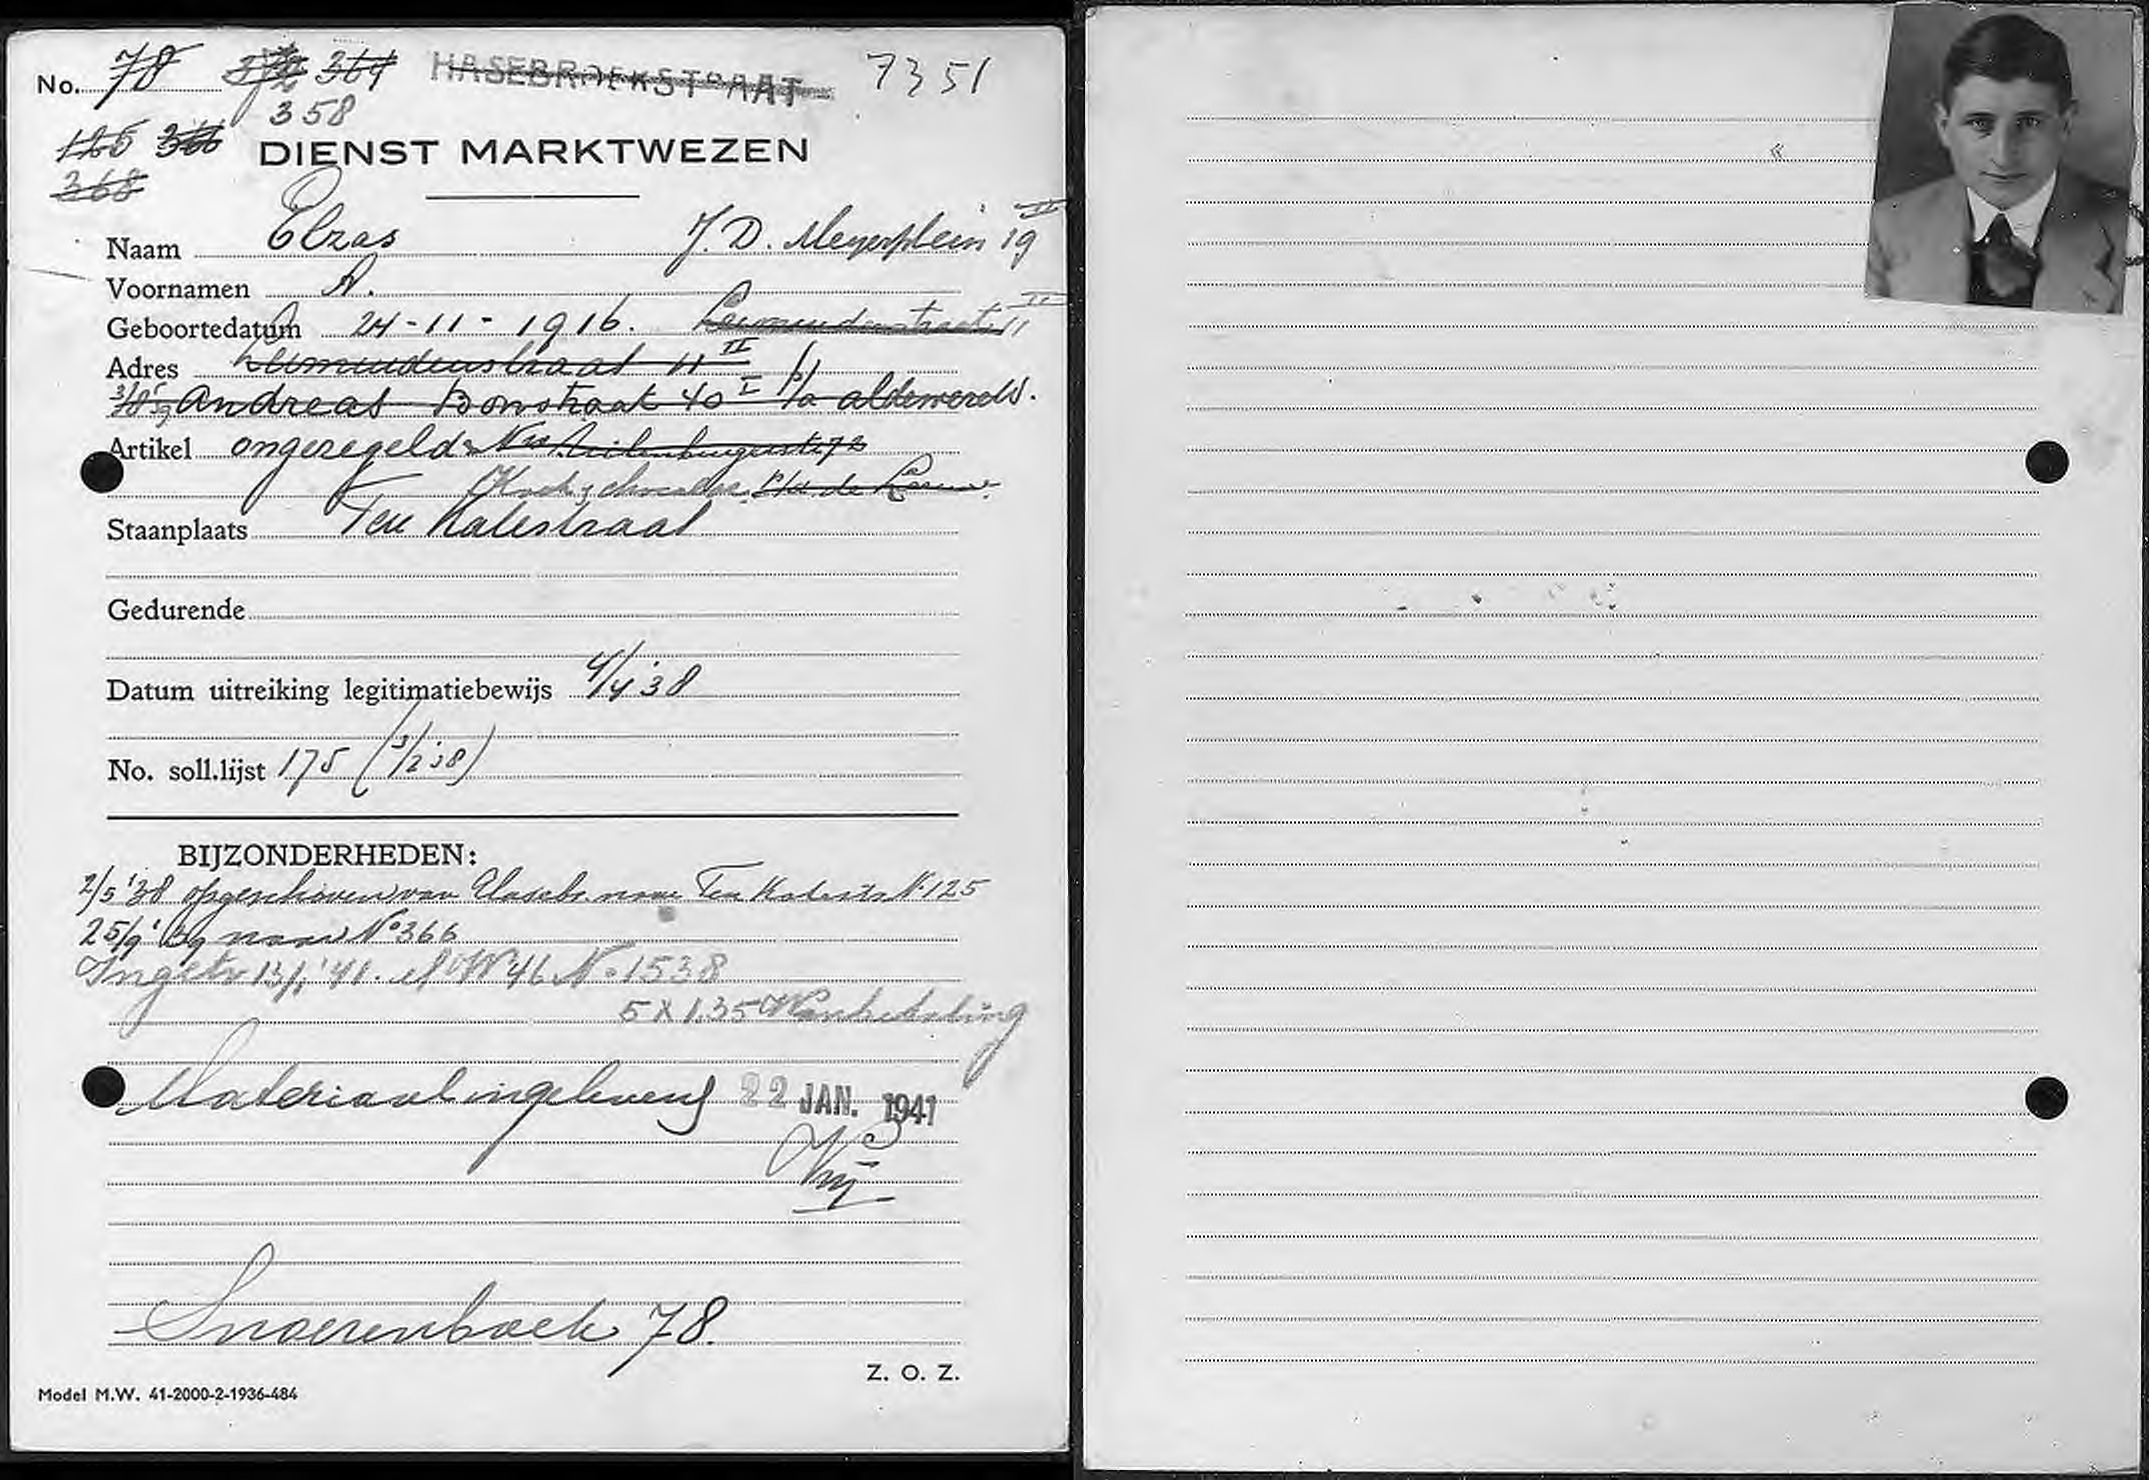 No. 78 372 364 HASEBROEKSTRAAT 7351
358
125 366 DIENST MARKTWEZEN
368
Naam Elzas J. D. Meyerplein 19 II
Voornamen A.
Geboortedatum 24-11-1916. Leimuidenstraat 11 II
Adres Leimuidenstraat 11 II
3/8 '39 Andreas Bonnstraat 40 I p/a aldewereld.
Artikel ongeregeld Nwe Uilenburgerstr 72
Koek, chocolade p/a de Leeuw.
Staanplaats Ten Katestraat
Gedurende
Datum uitreiking legitimatiebewijs 4/4 '38
No. soll.lijst 175 (3/2 '38)
BIJZONDERHEDEN:
2/5 '38 opgeschoven van Hasebr. naar Ten Katestr N. 125
25/9 '39 naar No 366
Ingetr 13/1 '41. M W 46 No 1538
5 X 1.35 Wanbetaling
Materiaal ingeleverd 22 JAN. 1941
Snoerenboek 78.
Z. O. Z.
Model M.W. 41-2000-2-1936-484